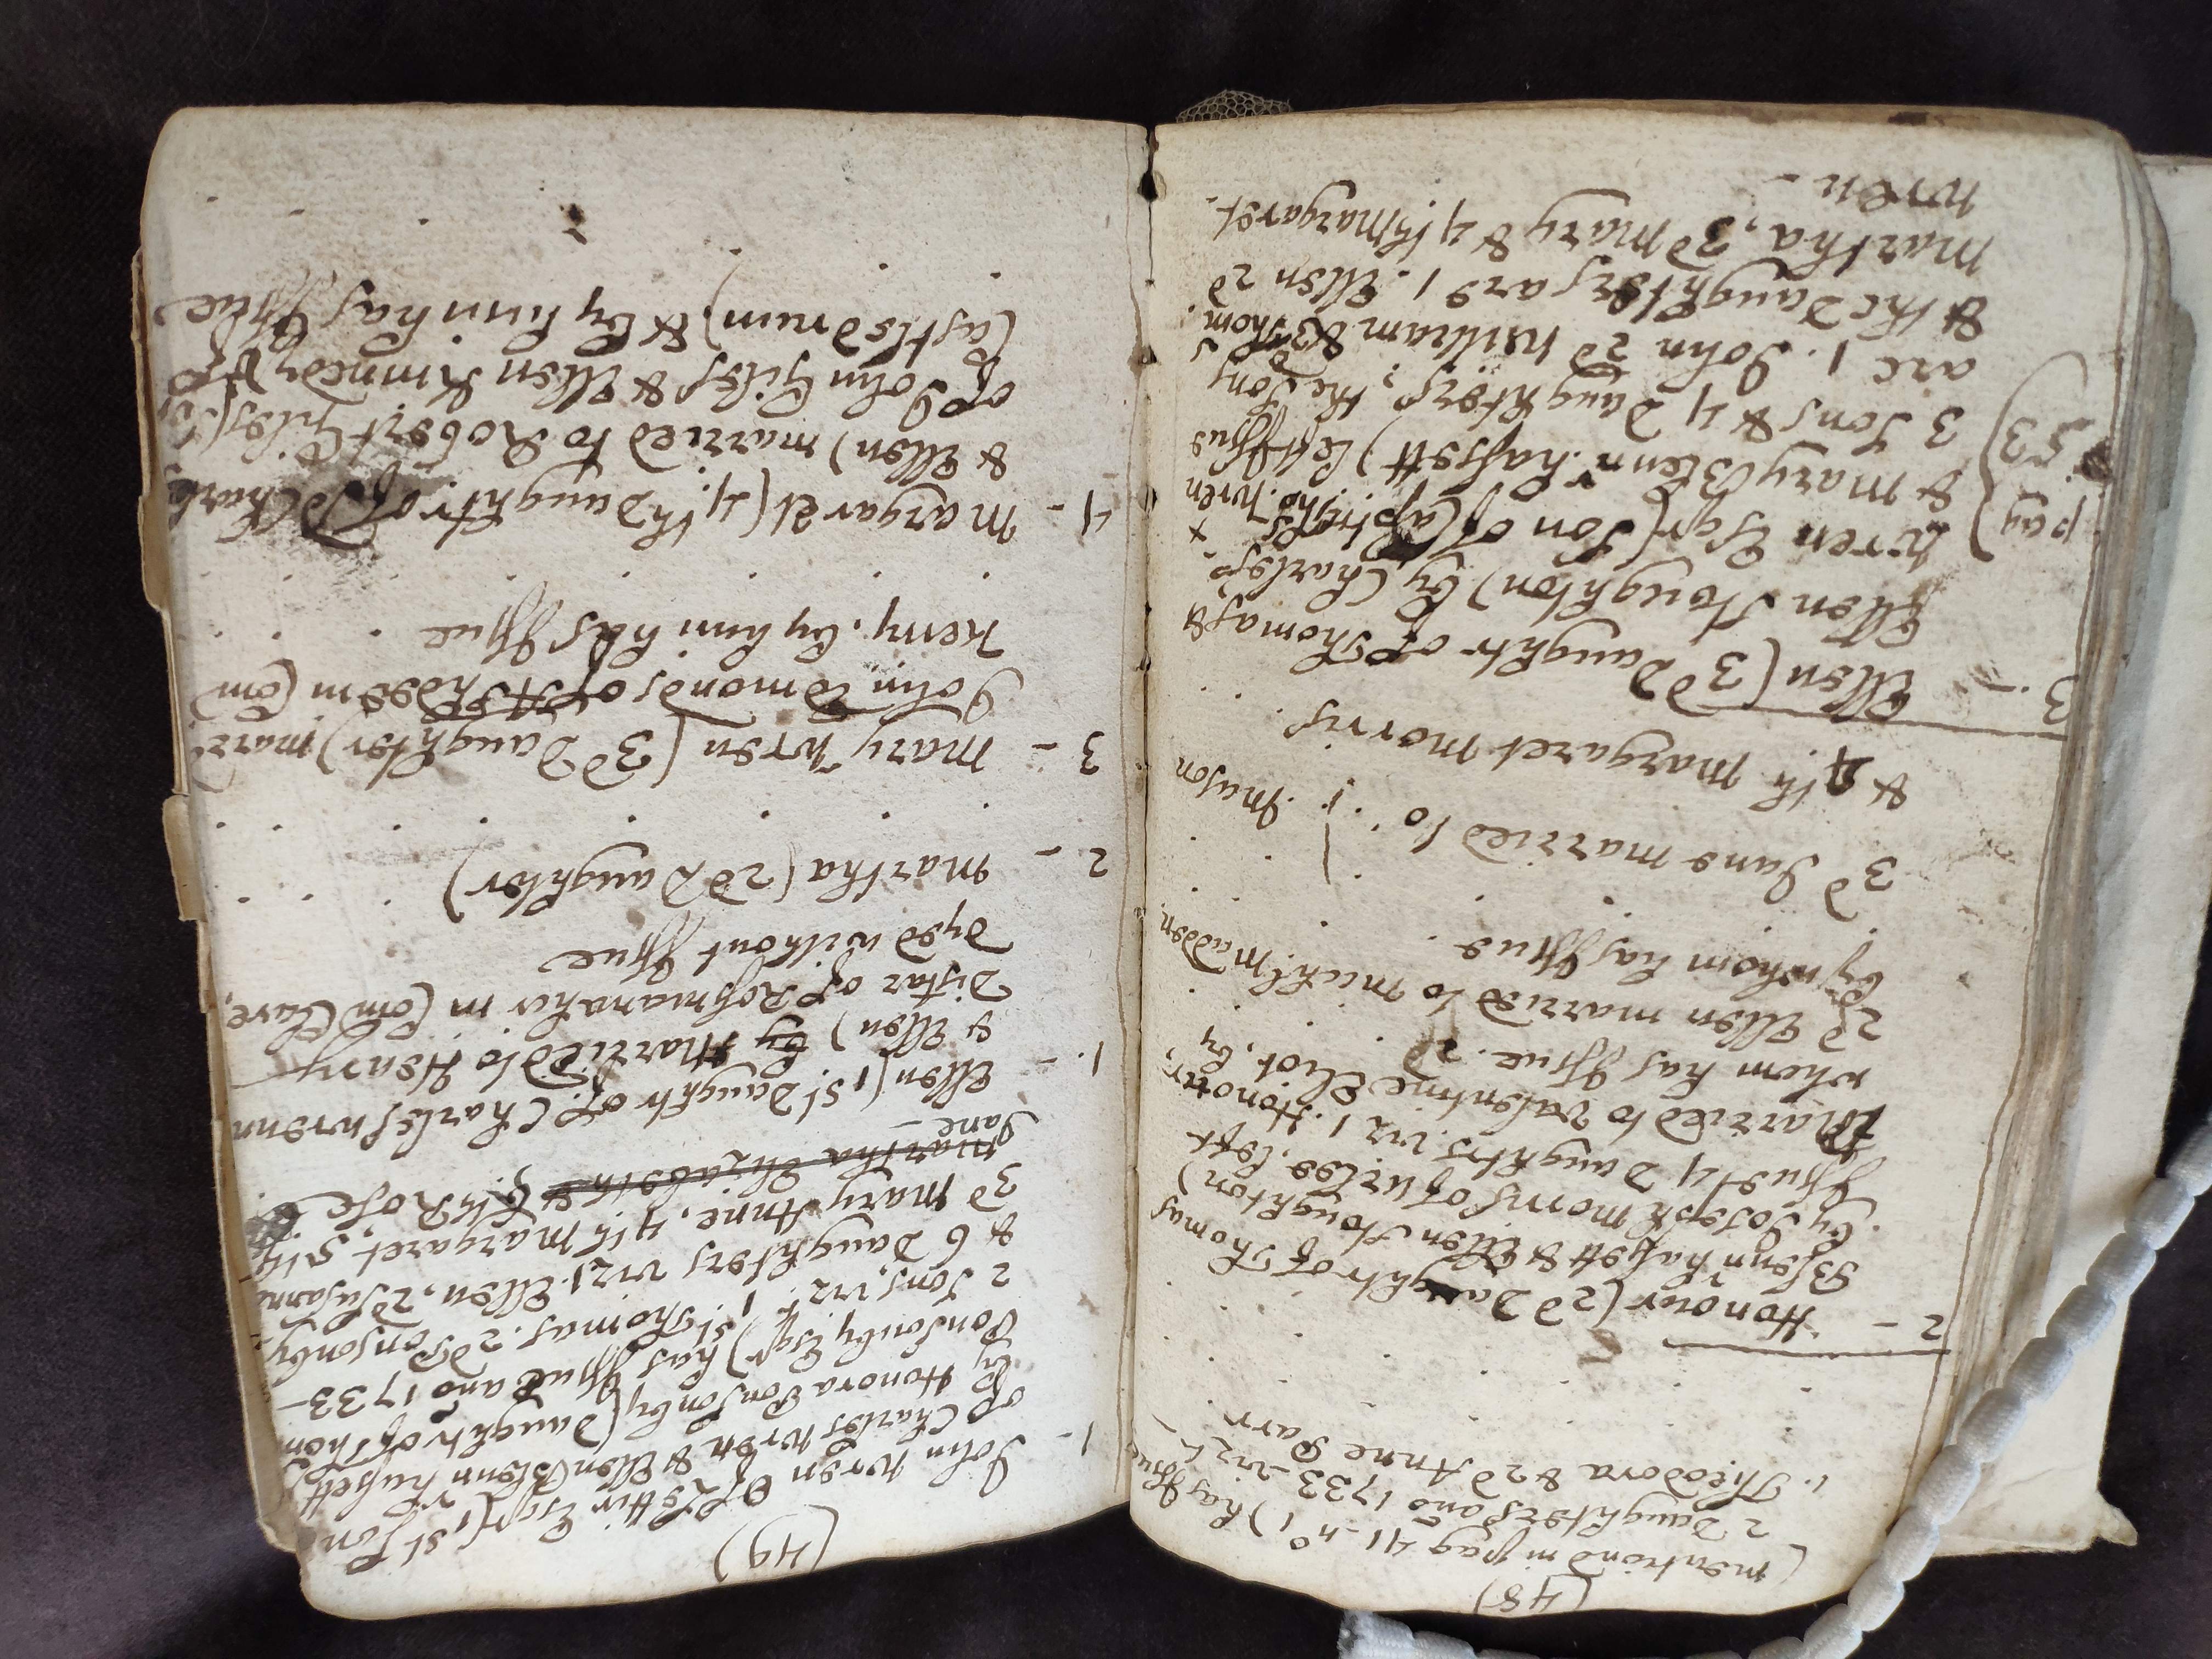 (48)
(mentiond in pag 41. no. 1) has Issue
2 Daughters ano 1733 - vizt
1. Theodora & 2d Anne Parr
2 - Honour (2d Daughtr of Thomas
Blennrhassett & Ellen Stoughton)
by Joseph Morris of Urlee, left
Issue 4 Daughtrs. viz 1. Honour,
Married to Valentine Eliot, by
whom has Issue. 2d
2d Ellen married to Michl. Madden
by whom has Issue
3d Jane married to Mason
& 4th Margaret Morris
3. - Ellen (3d Daughtr of Thomas &
Ellen Stoughton) by Charles
Wren Esqr (Son of Capt Thos. Wren
& Mary Blennrhassett) left Issue
3 Sons & 4 Daughters, the Sons
are 1. John 2d William & 3d Thom.
& the Daughters are 1. Ellen 2d
Martha, 3d Mary & 4th Margaret
Wren -
pag 53
(49)
1 - John Wren of Littir Esqr (1st Son
of Charles Wren & Ellen Blennrhassett)
by Honora Ponsonby (Daughtr of Thom
Ponsonby Esqr) has Issue ano 1733 -
2 Sons, vizt. 1st Thomas. 2d Ponsonby,
& 6 Daughters viz 1. Ellen, 2d Susann
3d Mary Anne, 4th Margaret, 5th
Martha Elizabeth & 6th Rose
Jane -
1. - Ellen (1st Daughtr of Charles Wrenn
& Ellen) by Married to Henry
Distar of Rosmanaher in Com Clare,
Dyed without Issue
2 - Martha (2d Daughter)
3 - Mary Wren (3d Daughter) mard
John Edmonds of Ardee in Com
Kerry. by him has Issue
4 - Margaret (4th Daughtr of sd Charles
& Ellen) married to Robert Giles (S
of John Giles & Ellen Kimmedy of
Castledrum) & by him has Issue